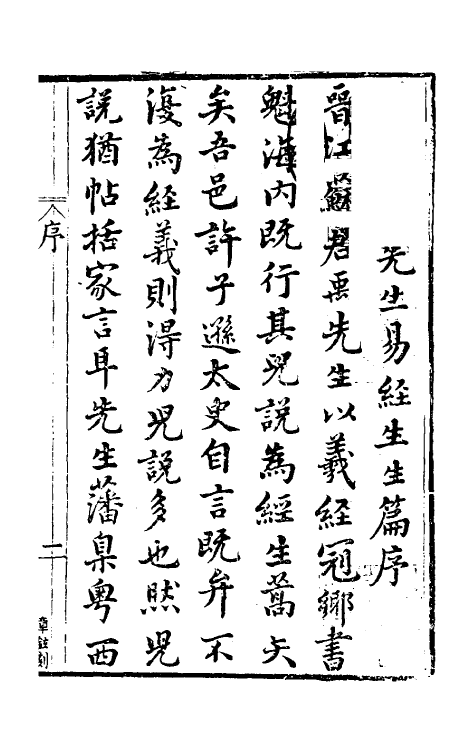 先生易經生生篇序
晉江蘇君禹先生以羲經冠鄉書
魁海内既行其兒説為經生蒿矢
矣吾邑許子遜太史自言既弁不
復為經義則得力兒説多也然兒
説猶帖括家言耳先生藩臬粤西
序
二